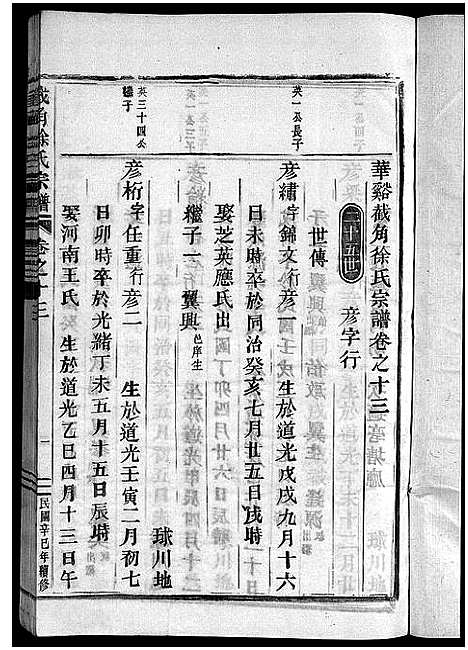 華谿截角徐氏宗譜卷之十三
二十五世　彥字行
于世傳
英一公長子
彥繡字錦文行彥一　生於道光戊戌九月十六
日未時卒於同治癸亥七月廿五日戌時
娶芝英應氏出
繼子一　翼興邑庠生
英三十四公
繼子
彥桁字任重行彥二　生於道光壬寅二月初七
球川地
日卯時卒於光緒丁未五月十五日辰時
娶河南王氏　生於道光乙巳四月十三日午
截角徐氏宗譜
卷之十三
一
民國辛巳年續修